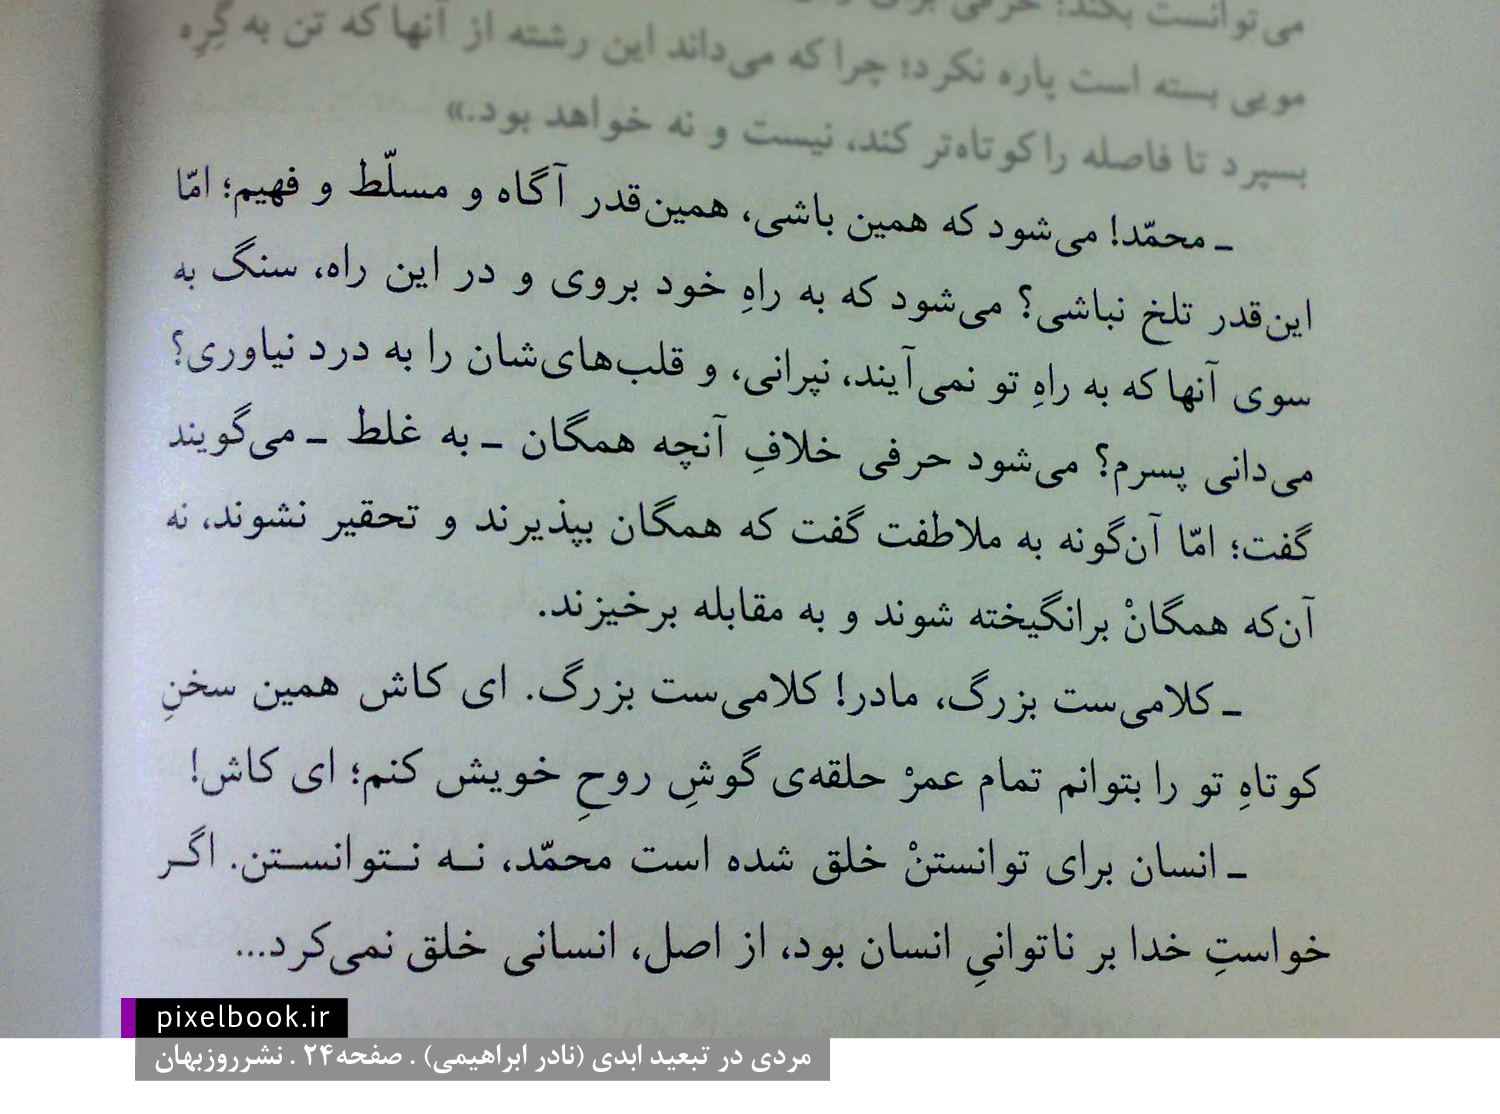 می‌توانست بکند؛ حرفی برای
مویی بسته است پاره نکرد؛ چرا که می‌داند این رشته از آنها که تن به گِرِه
بسپرد تا فاصله را کوتاه‌تر کند، نیست و نه خواهد بود.»
ـ محمّد! می‌شود که همین باشی، همین‌قدر آگاه و مسلّط و فهیم؛ امّا
این‌قدر تلخ نباشی؟ می‌شود که به راهِ خود بروی و در این راه، سنگ به
سوی آنها که به راهِ تو نمی‌آیند، نپرانی، و قلب‌های‌شان را به درد نیاوری؟
می‌دانی پسرم؟ می‌شود حرفی خلافِ آنچه همگان ـ به غلط ـ می‌گویند
گفت؛ امّا آن‌گونه به ملاطفت گفت که همگان بپذیرند و تحقیر نشوند، نه
آن‌که همگانْ برانگیخته شوند و به مقابله برخیزند.
ـ کلامی‌ست بزرگ، مادر! کلامی‌ست بزرگ. ای کاش همین سخنِ
کوتاهِ تو را بتوانم تمام عمرْ حلقه‌ی گوشِ روحِ خویش کنم؛ ای کاش!
ـ انسان برای توانستنْ خلق شده است محمّد، نـه نـتوانسـتن. اگـر
خواستِ خدا بر ناتوانیِ انسان بود، از اصل، انسانی خلق نمی‌کرد...
pixelbook.ir
مردی در تبعید ابدی (نادر ابراهیمی) . صفحه۲۴ . نشرروزبهان